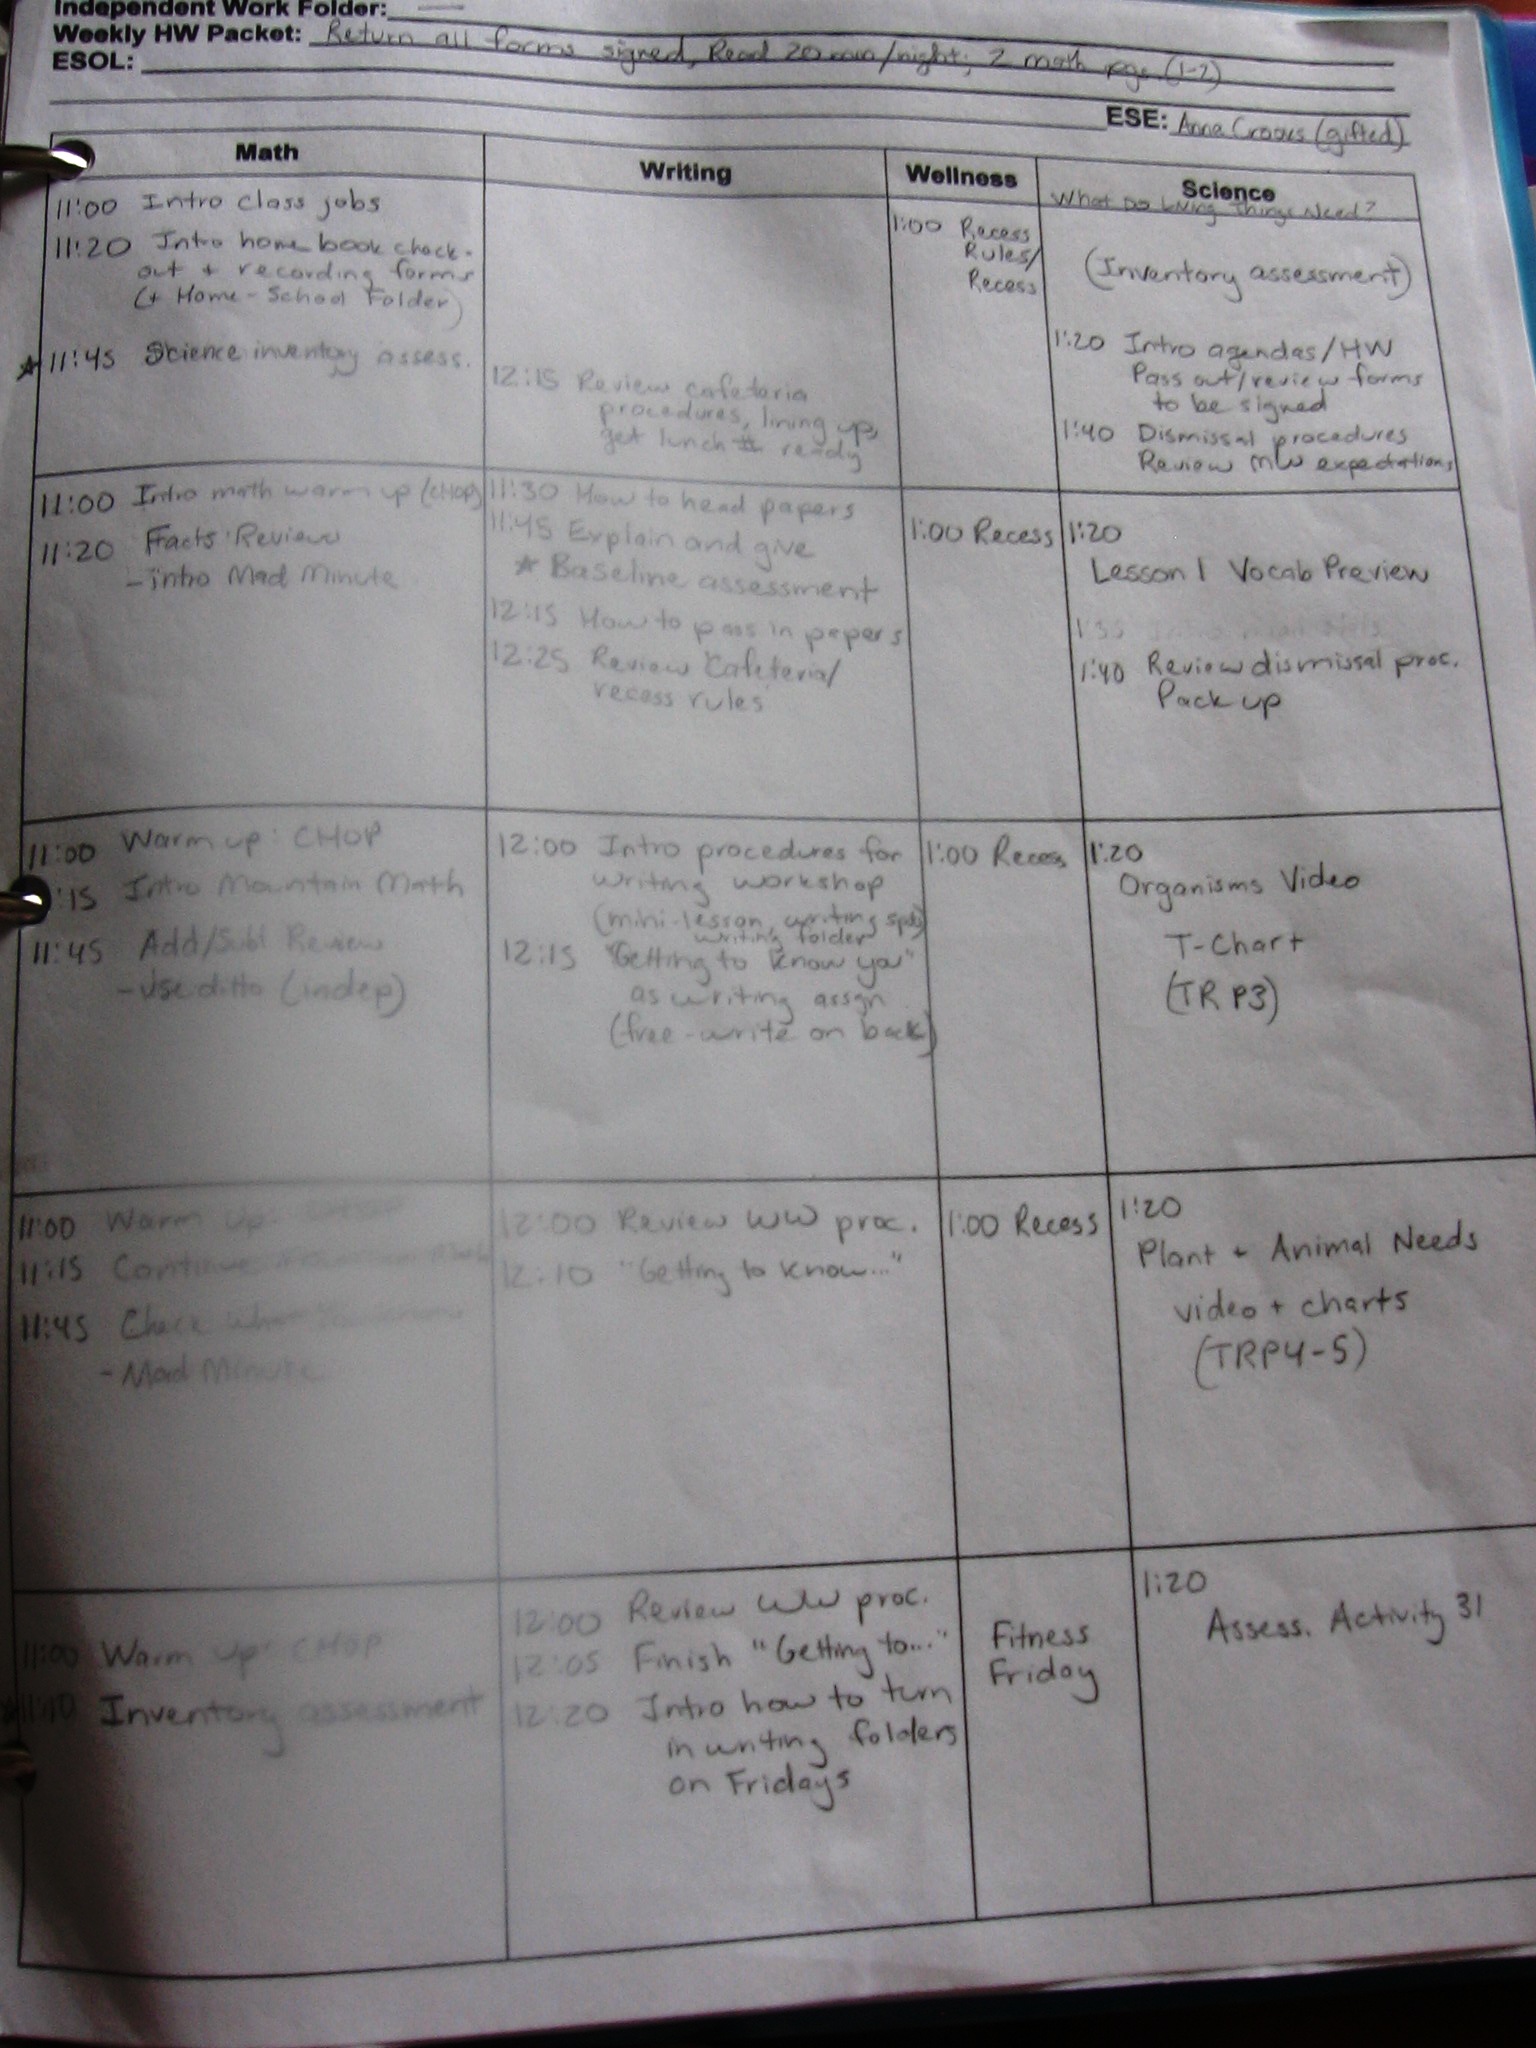 Independent Work Folder: —
Weekly HW Packet: Return all forms signed, Read 20 min/night; 2 math pgs. (1-2)
ESOL:
ESE: Anna (gifted)
Math
Writing
Wellness
Science
What Do Living Things Need?
11:00 Intro class jobs
11:20 Intro home book check-
out + recording forms
(+ Home-School Folder)
11:45 Science inventory assess.
12:15 Review cafeteria
procedures, lining up,
get lunch # ready
1:00 Recess
Rules/
Recess
(Inventory assessment)
1:20 Intro agendas/HW
Pass out/review forms
to be signed
1:40 Dismissal procedures
Review MW expectations
11:00 Intro math warm up (CHOP)
11:20 Facts Review
-intro Mad Minute
11:30 How to head papers
11:45 Explain and give
* Baseline assessment
12:15 How to pass in papers
12:25 Review Cafeteria/
recess rules
1:00 Recess
1:20
Lesson 1 Vocab Preview
1:40 Review dismissal proc.
Pack up
11:00 Warm up: CHOP
:15 Intro Mountain Math
11:45 Add/Subt Review
-use ditto (indep)
12:00 Intro procedures for
writing workshop
(mini-lesson, writing spots,
writing folder
12:15 "Getting to know you"
as writing assgn
(free-write on back)
1:00 Recess
1:20
Organisms Video
T-Chart
(TR P3)
11:00 Warm up:
11:15 Continue
11:45 Check
-Mad Minute
12:00 Review WW proc.
12:10 "Getting to know..."
1:00 Recess
1:20
Plant + Animal Needs
video + charts
(TRP4-5)
11:00 Warm up: CHOP
11:10 Inventory assessment
12:00 Review WW proc.
12:05 Finish "Getting to..."
12:20 Intro how to turn
in writing folders
on Fridays
Fitness
Friday
1:20
Assess. Activity 31